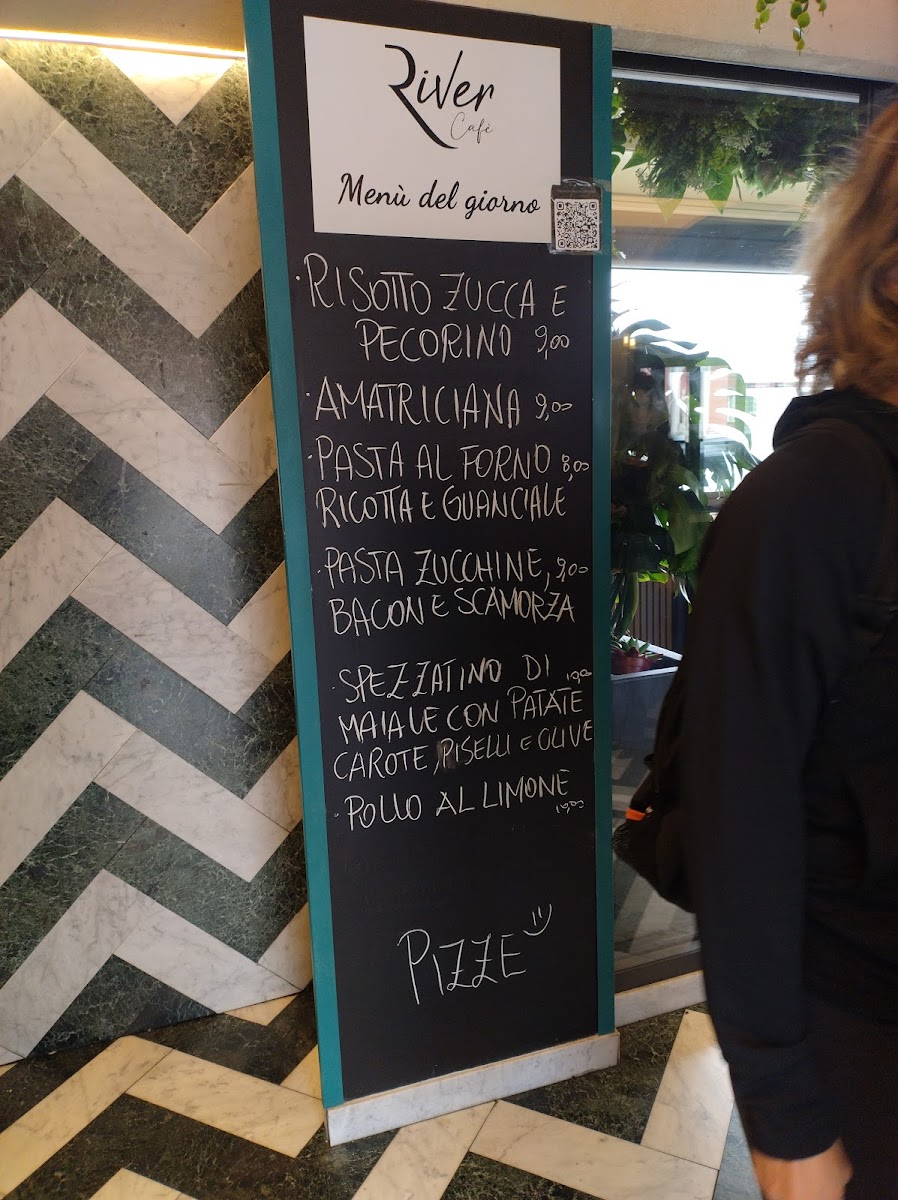 River
Cafè
Menù del giorno
· RISOTTO ZUCCA E
PECORINO 9,00
· AMATRICIANA 9,00
· PASTA AL FORNO 8,00
RICOTTA E GUANCIALE
· PASTA ZUCCHINE, 9,00
BACON E SCAMORZA
· SPEZZATINO DI 10,00
MAIALE CON PATATE
CAROTE, PISELLI E OLIVE
· POLLO AL LIMONE
10,00
PIZZE